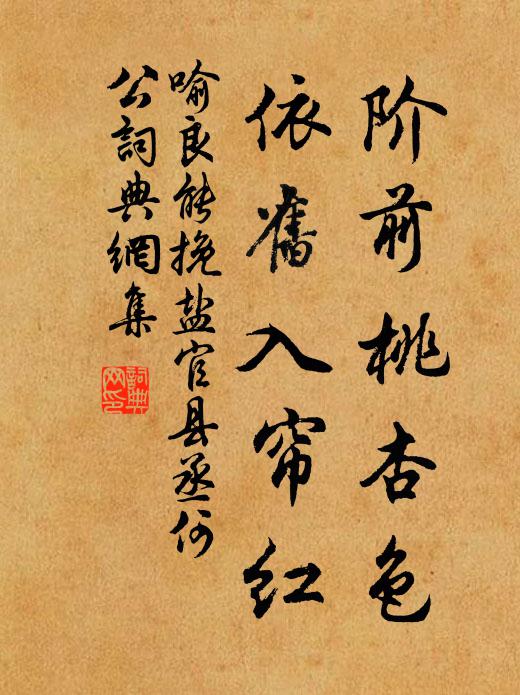 阶前桃杏色
依舊入帘红
喻良能挽盐官县丞何
公詞典網集
詞典网印